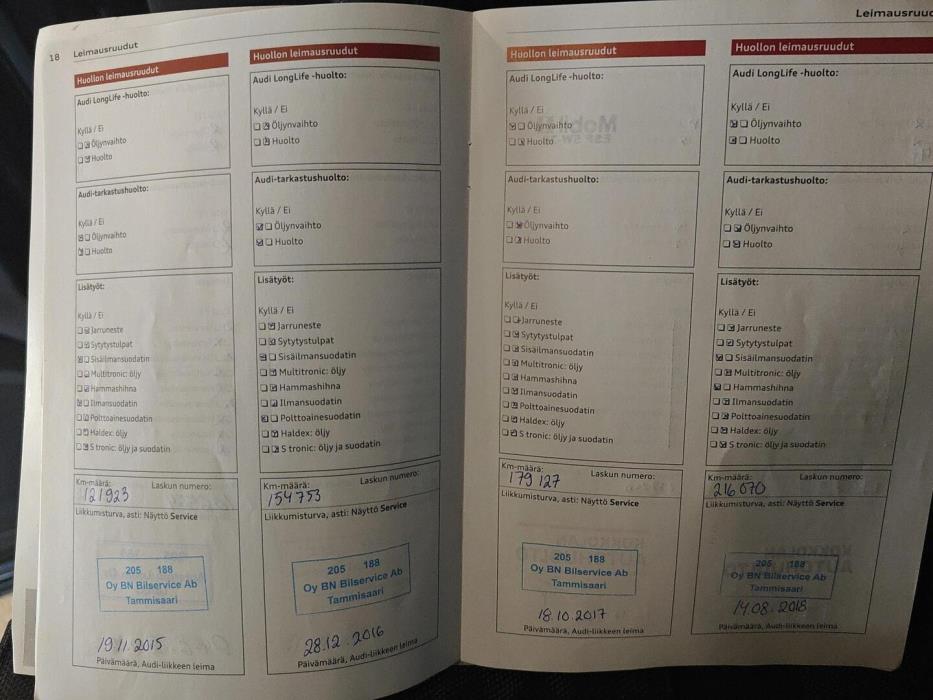 18 Leimausruudut
Huollon leimausruudut
Audi LongLife -huolto:
Kyllä / Ei
Öljynvaihto
Huolto
Audi-tarkastushuolto:
Kyllä / Ei
Öljynvaihto
Huolto
Lisätyöt:
Kyllä / Ei
Jarruneste
Sytytystulpat
Sisäilmansuodatin
Multitronic: öljy
Hammashihna
Ilmansuodatin
Polttoainesuodatin
Haldex: öljy
S tronic: öljy ja suodatin
Km-määrä: Laskun numero:
121923
Liikkumisturva, asti: Näyttö Service
205 188
Oy BN Bilservice Ab
Tammisaari
19.11.2015
Päivämäärä, Audi-liikkeen leima
Huollon leimausruudut
Audi LongLife -huolto:
Kyllä / Ei
Öljynvaihto
Huolto
Audi-tarkastushuolto:
Kyllä / Ei
Öljynvaihto
Huolto
Lisätyöt:
Kyllä / Ei
Jarruneste
Sytytystulpat
Sisäilmansuodatin
Multitronic: öljy
Hammashihna
Ilmansuodatin
Polttoainesuodatin
Haldex: öljy
S tronic: öljy ja suodatin
Km-määrä: Laskun numero:
154753
Liikkumisturva, asti: Näyttö Service
205 188
Oy BN Bilservice Ab
Tammisaari
28.12.2016
Päivämäärä, Audi-liikkeen leima
Leimausruud
Huollon leimausruudut
Audi LongLife -huolto:
Kyllä / Ei
Öljynvaihto
Huolto
Audi-tarkastushuolto:
Kyllä / Ei
Öljynvaihto
Huolto
Lisätyöt:
Kyllä / Ei
Jarruneste
Sytytystulpat
Sisäilmansuodatin
Multitronic: öljy
Hammashihna
Ilmansuodatin
Polttoainesuodatin
Haldex: öljy
S tronic: öljy ja suodatin
Km-määrä: Laskun numero:
179 127
Liikkumisturva, asti: Näyttö Service
205 188
Oy BN Bilservice Ab
Tammisaari
18.10.2017
Päivämäärä, Audi-liikkeen leima
Huollon leimausruudut
Audi LongLife -huolto:
Kyllä / Ei
Öljynvaihto
Huolto
Audi-tarkastushuolto:
Kyllä / Ei
Öljynvaihto
Huolto
Lisätyöt:
Kyllä / Ei
Jarruneste
Sytytystulpat
Sisäilmansuodatin
Multitronic: öljy
Hammashihna
Ilmansuodatin
Polttoainesuodatin
Haldex: öljy
S tronic: öljy ja suodatin
Km-määrä: Laskun numero:
216070
Liikkumisturva, asti: Näyttö Service
205 188
Oy BN Bilservice Ab
Tammisaari
14.08.2018
Päivämäärä, Audi-liikkeen leima